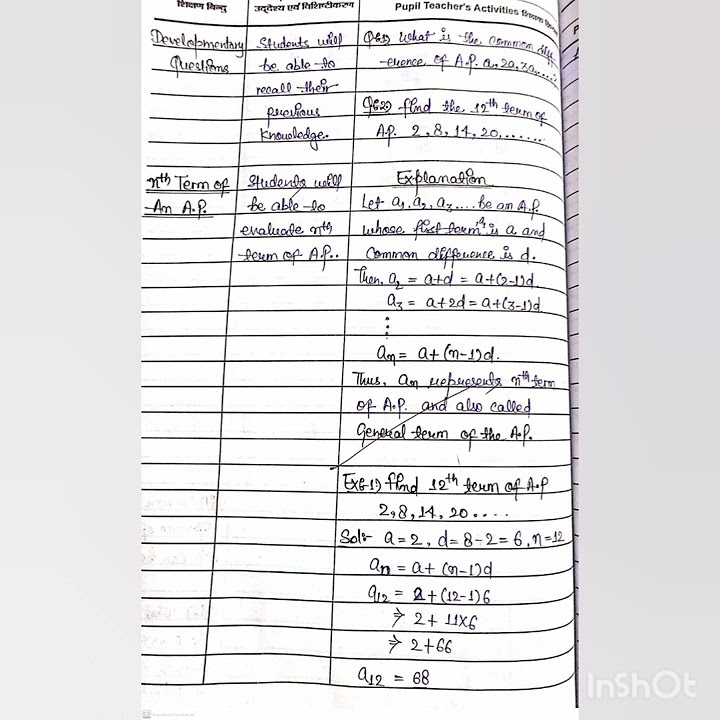 शिक्षण बिन्दु
उद्देश्य एवं विशिष्टीकरण
Pupil Teacher's Activities शिक्षक
Developmentary
Questions
Students will
be able to
recall their
previous
knowledge.
Q(1) What is the common diff
-erence of A.P. a, 2a, 3a,....
Q(2) find the 12th term of
A.P. 2, 8, 14, 20.......
nth Term of
An A.P.
Students will
be able to
evaluate nth
term of A.P..
Explanation
Let a1, a2, a3.... be an A.P.
whose first term is a and
Common difference is d.
Then, a2 = a+d = a+(2-1)d
a3 = a+2d = a+(3-1)d
⋮
an = a+(n-1)d.
Thus, an represents nth term
of A.P. and also called
General term of the A.P.
Ex(-1) find 12th term of A.P
2, 8, 14, 20....
Sol:- a = 2, d = 8-2 = 6, n = 12
an = a+(n-1)d
a12 = 2+(12-1)6
⇒ 2+11×6
⇒ 2+66
a12 = 68
InShOt